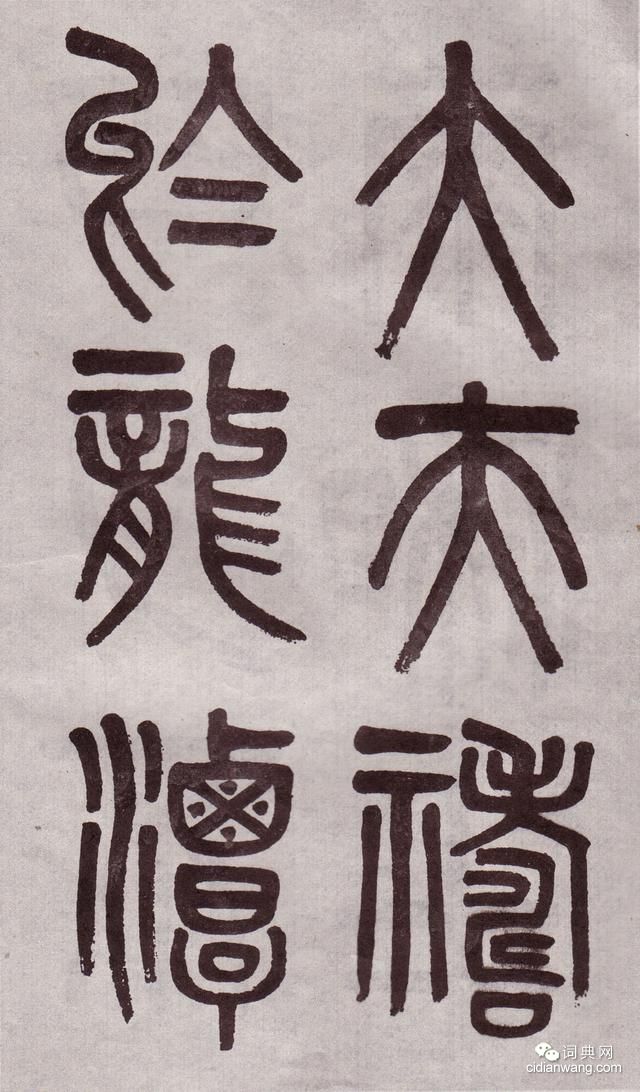 大夫禱
於龍潭
词典网
cidianwang.com